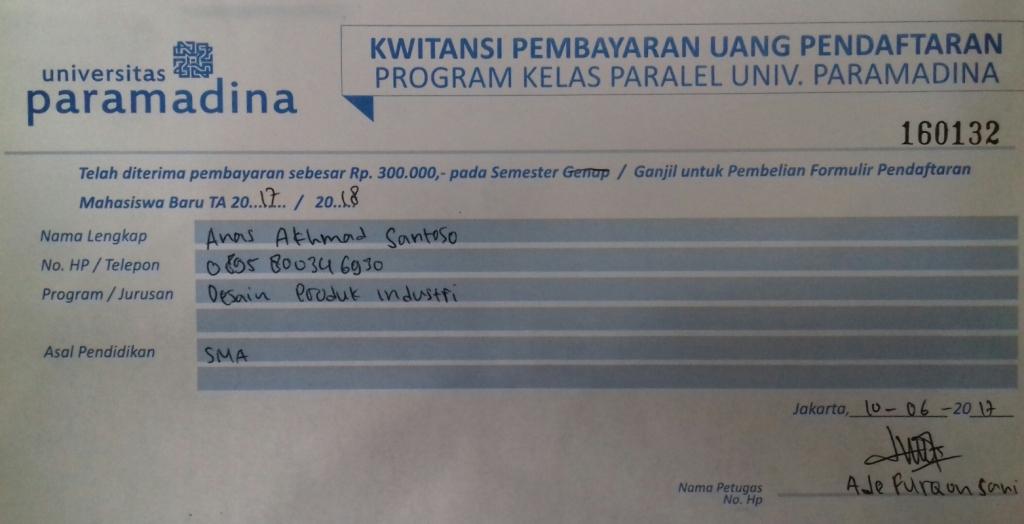 universitas
paramadina
KWITANSI PEMBAYARAN UANG PENDAFTARAN
PROGRAM KELAS PARALEL UNIV. PARAMADINA
160132
Telah diterima pembayaran sebesar Rp. 300.000,- pada Semester Genap / Ganjil untuk Pembelian Formulir Pendaftaran
Mahasiswa Baru TA 20..17.. / 20..18
Nama Lengkap Anas Akhmad Santoso
No. HP / Telepon 0895 80034 6930
Program / Jurusan Desain Produk industri
Asal Pendidikan SMA
Jakarta, 10 - 06 - 2017
Ade Furqon Sani
Nama Petugas
No. Hp